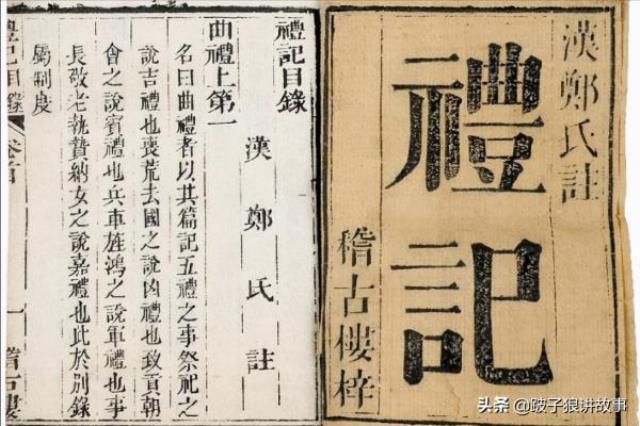 漢鄭氏註
禮記
稽古樓梓
禮記目錄
漢鄭氏註
曲禮上第一
名曰曲禮者以其篇記五禮之事祭祀之
說吉禮也喪荒去國之說凶禮也致貢朝
會之說賓禮也兵車旌鴻之說軍禮也事
長敬老執贄納女之說嘉禮也此於別錄
屬制度
禮記目錄 卷首 一 稽古樓
头条 @跛子狼讲故事